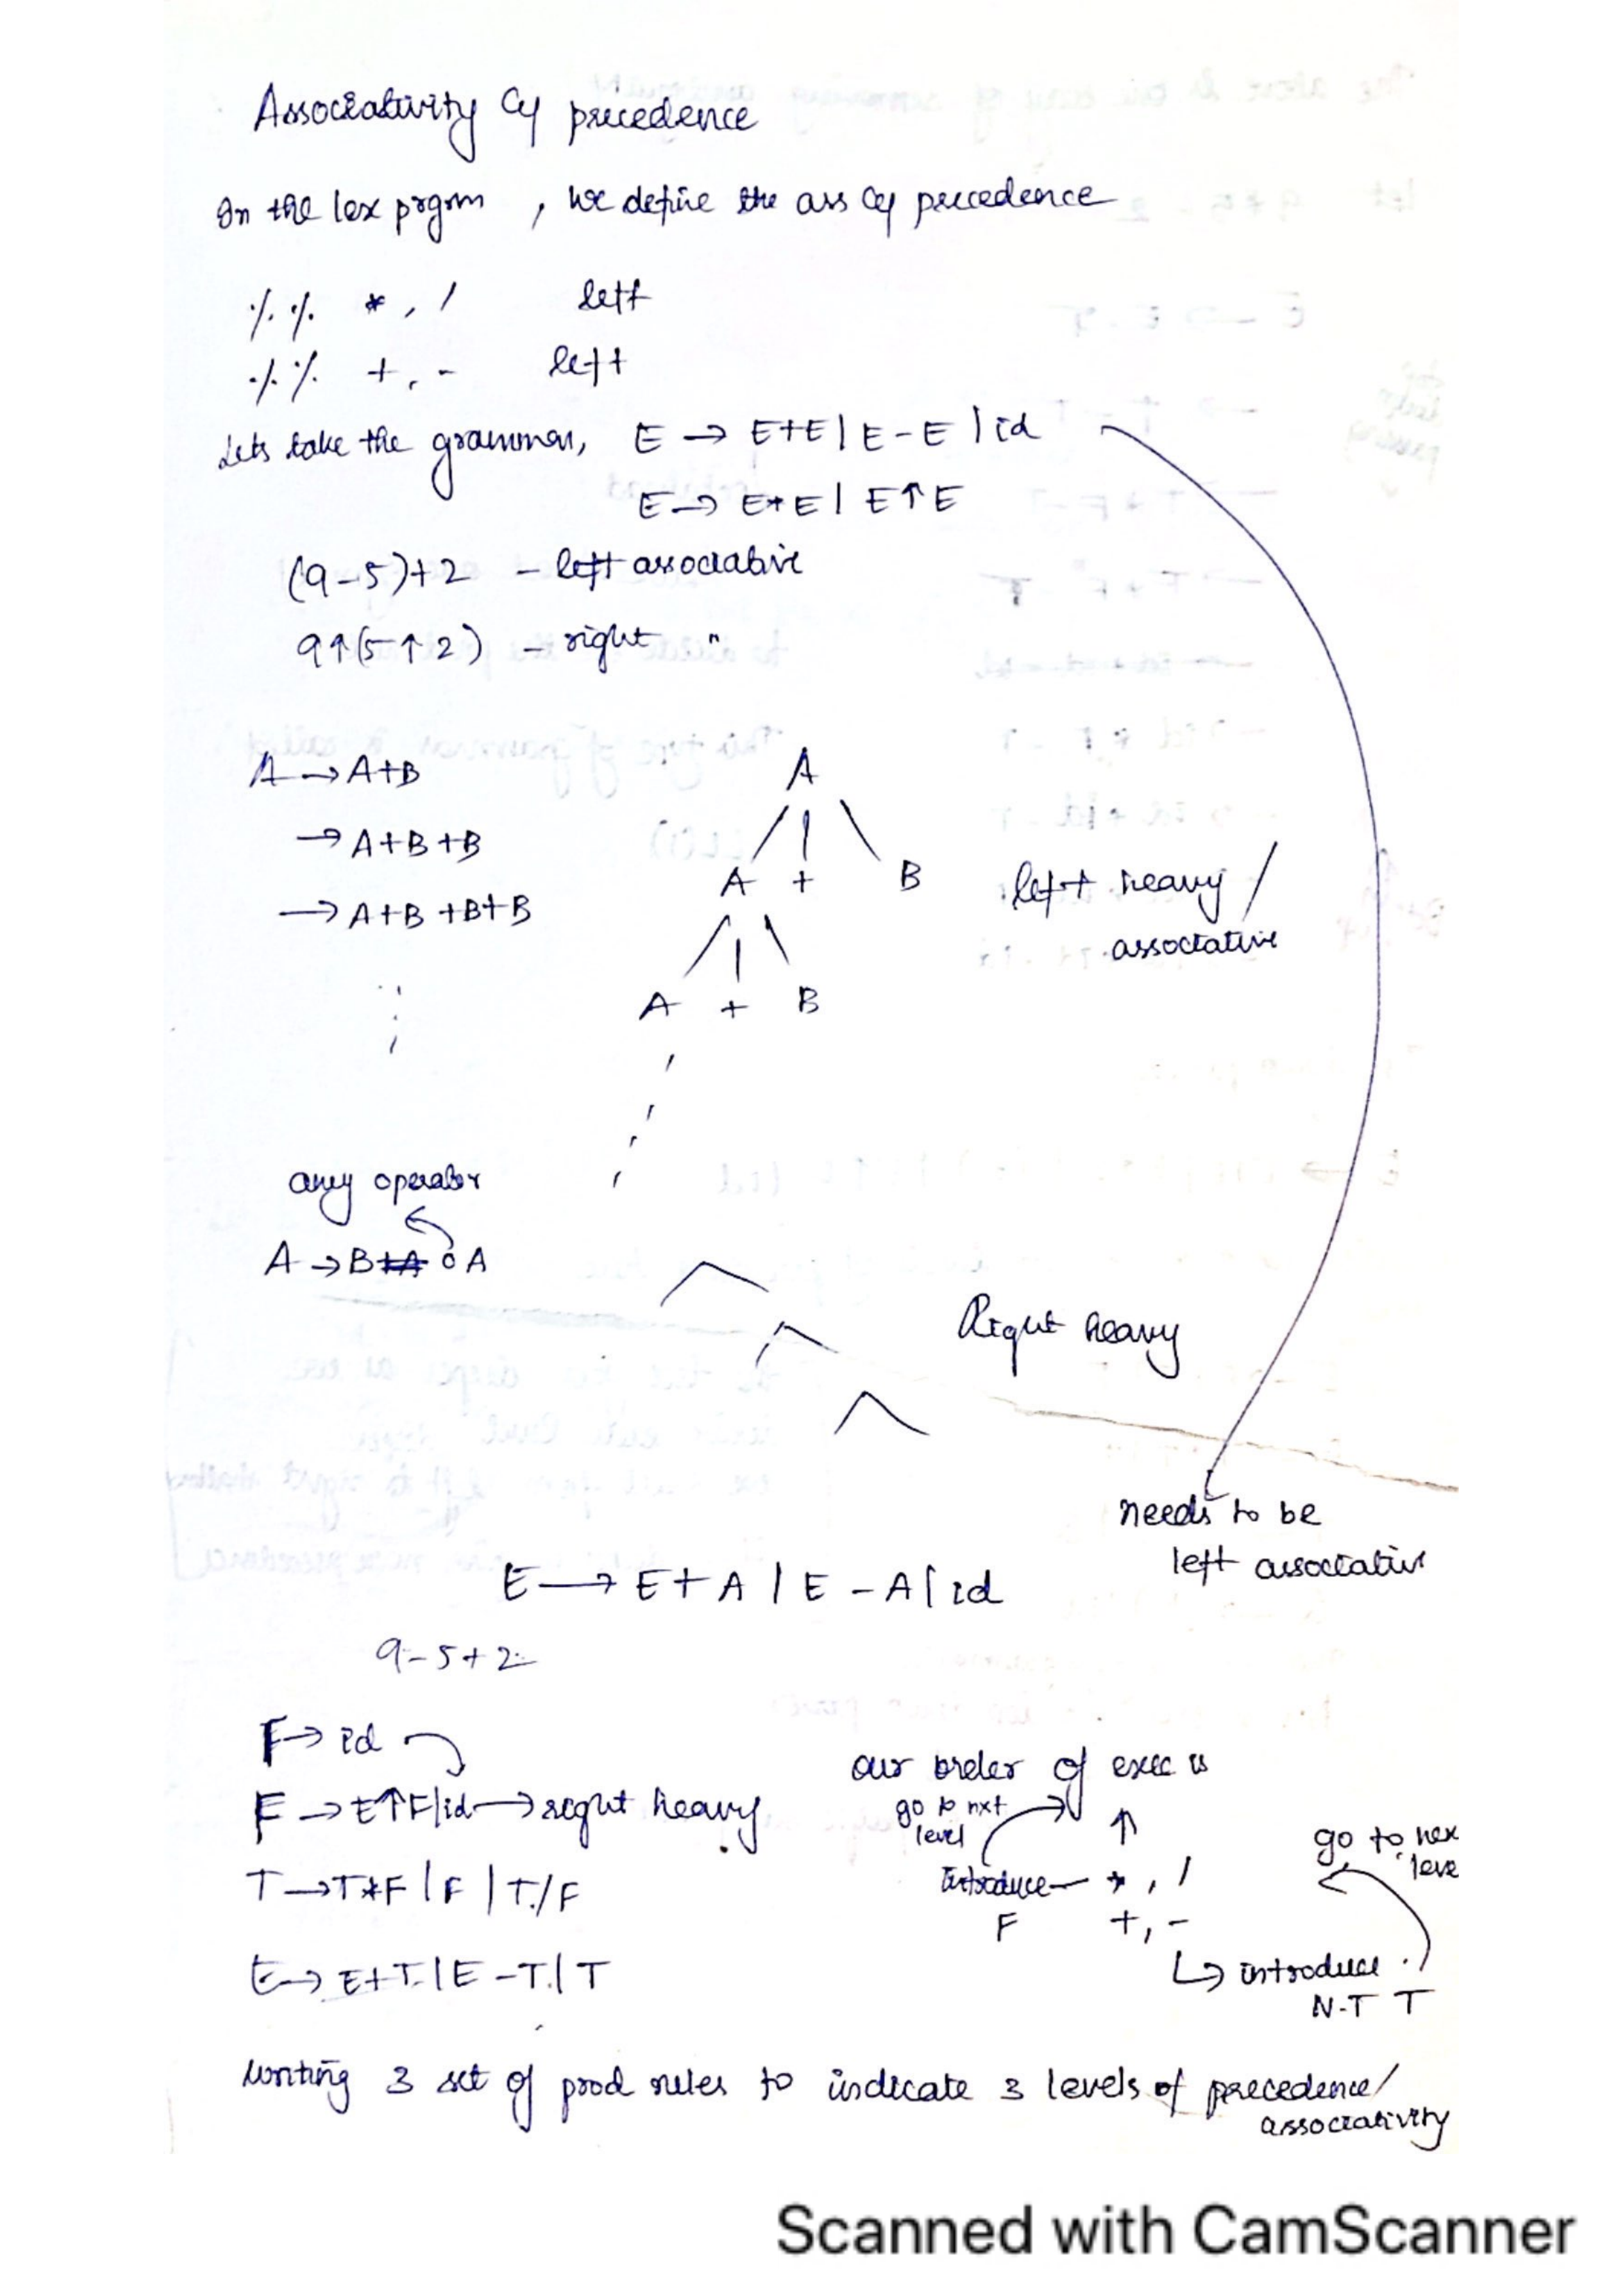 Associativity & precedence
In the lex prgm , we define the ass & precedence
%% *, / left
%% +, - left
Lets take the grammar, E → E+E | E-E | id
E → E*E | E↑E
(9-5)+2 - left associative
9↑(5↑2) - right "
A → A+B
→ A+B+B
→ A+B+B+B
A
A + B
A + B
left heavy /
associative
any operator
A → B+A o A
Right heavy
needs to be
left associative
E → E+A | E-A | id
9-5+2
F → id
F → E↑F|id → right heavy
T → T*F | F | T/F
E → E+T | E-T | T
our order of exec is
go to nxt
level
↑
Introduce *, /
F
+, -
go to nex
leve
↳ introduce
N-T T
Writing 3 set of prod rules to indicate 3 levels of precedence/
associativity
Scanned with CamScanner